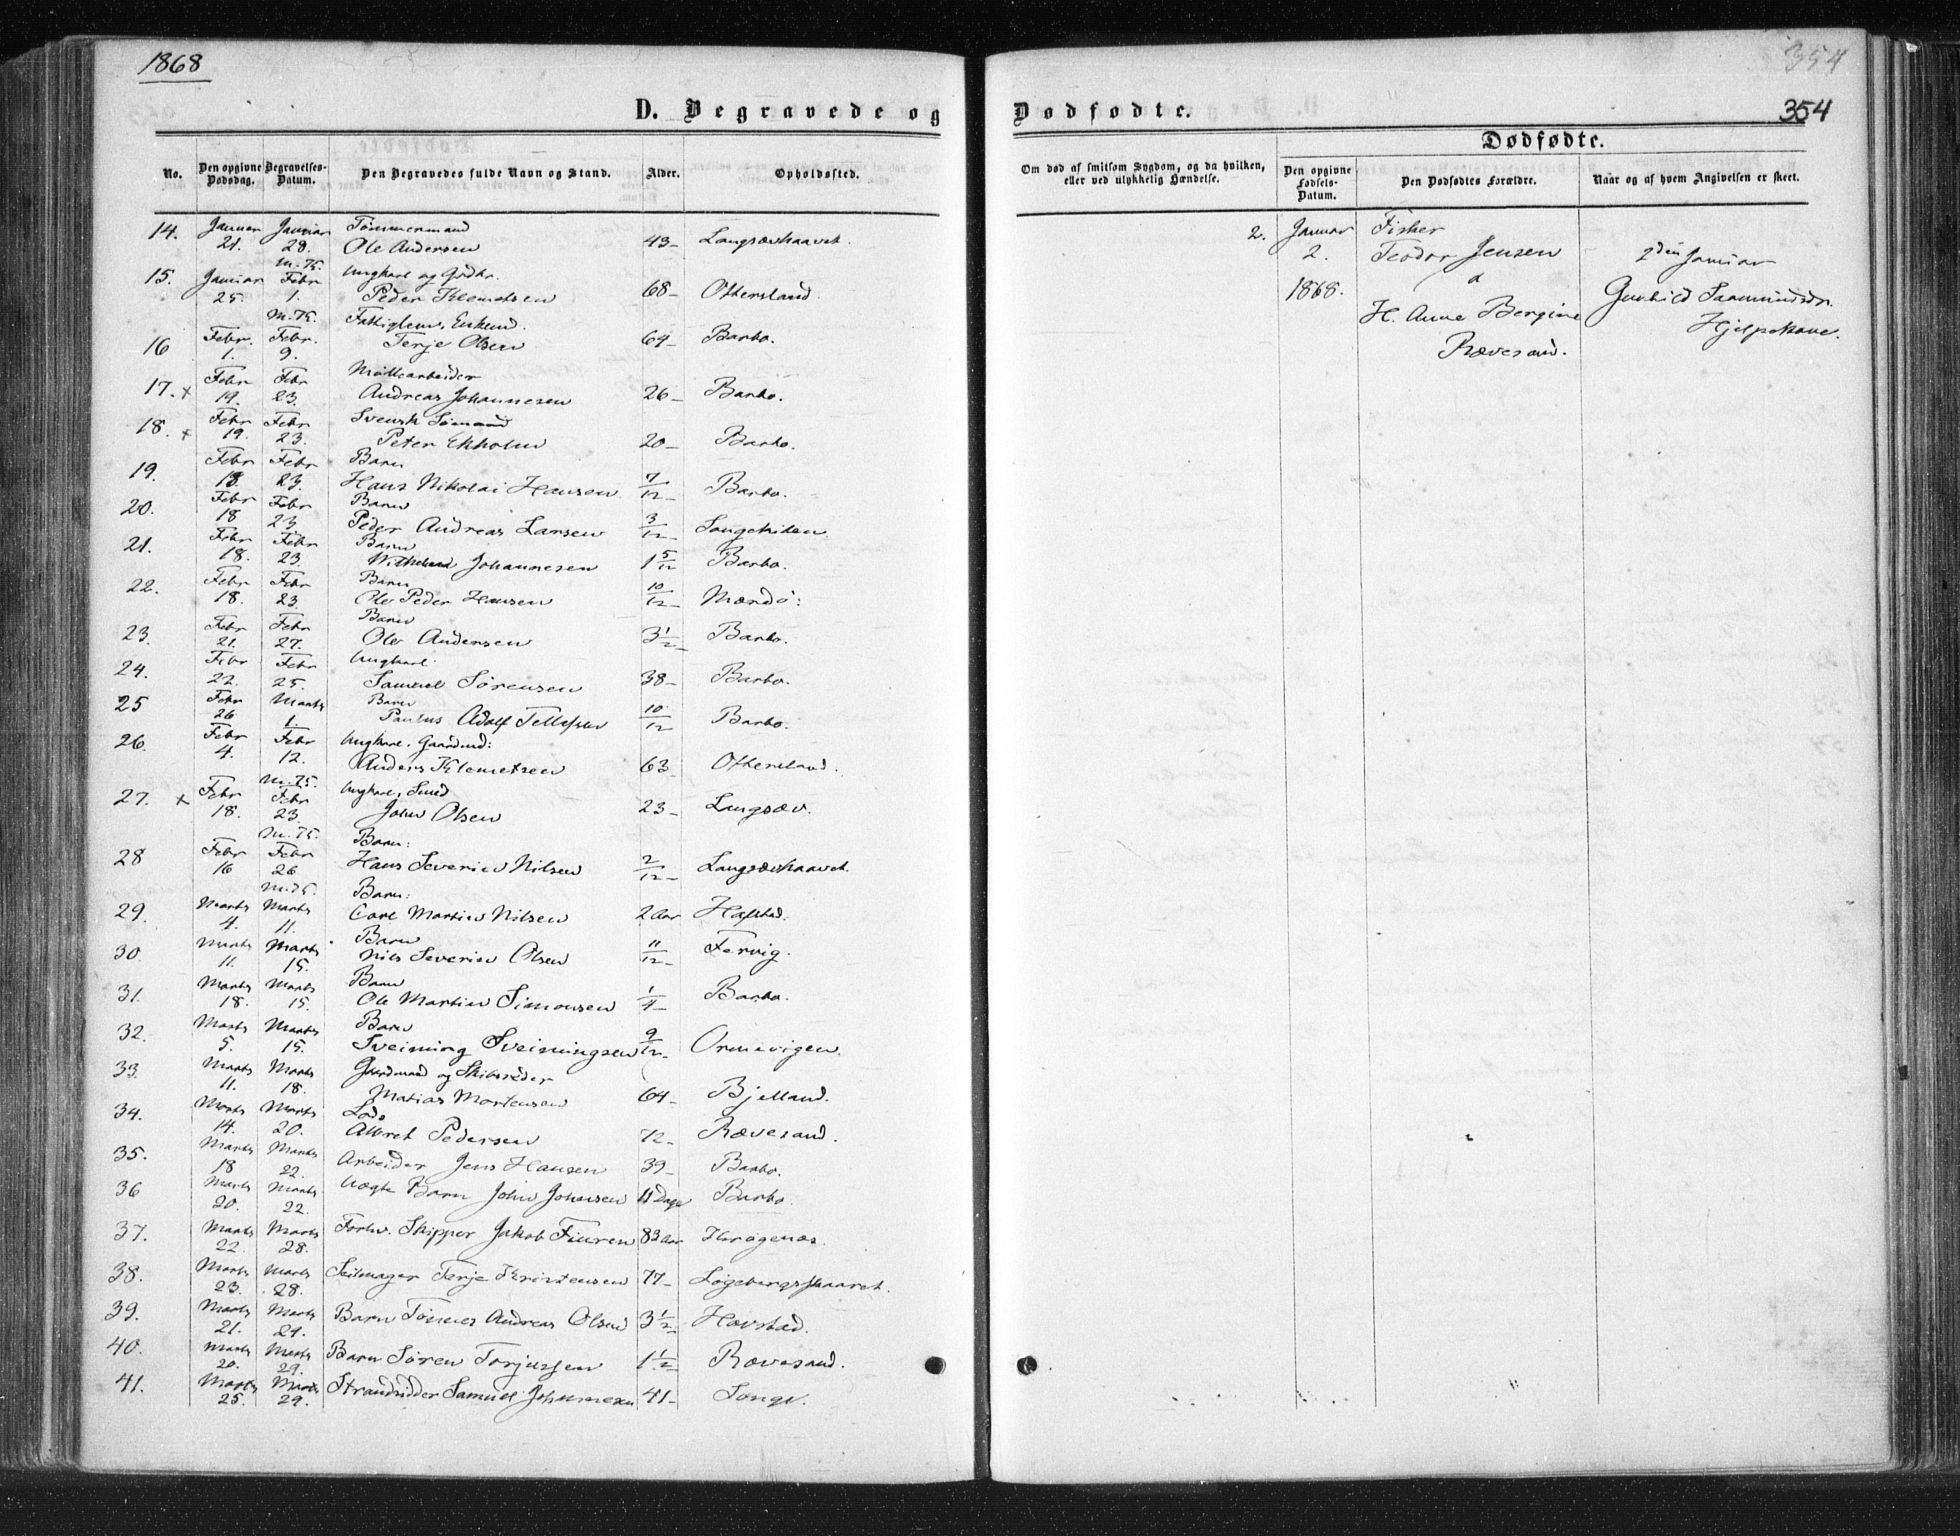 1868
354
354
D. Begravede og Dødfødte.
Dødfødte.
No. Den opgivne Dødsdag. Begravelses-Datum. Den Begravedes fulde Navn og Stand. Alder. Opholdssted.
Om død af smitsom Sygdom, og da hvilken, eller ved ulykkelig Hændelse. Den opgivne Fødsels-Datum. Den Dødfødtes Forældre. Naar og af hvem Angivelsen er skeet.
14. Januar Januar Tømmermand
21. 28. Ole Andersen 43- Langsævhaavet.
M. 75.
15. Januar Febr Ungkarl og Gdbr.
25 1. Peder Klemetsen 68- Ottersland.
M. 75. Fattiglem, Enkemd.
16 Febr. Febr. Terje Olsen 64- Barbo.
1. 9.
17. x Febr Febr Møllearbeider
19. 23. Andreas Johannesen 26- Barbo.
18. x Febr Febr Svensk Sømand
19. 23. Peter Ekholm 20- Barbo.
19. Febr Febr Barn
18. 23. Hans Nikolai Hansen 7/12- Barbo.
20. Febr Febr Barn
18 23 Peder Andreas Larsen 3/12- Songekilen.
21. Febr Febr Barn
18. 23. Wilhelm Johannesen 1 5/12 Barbo.
22. Febr Febr Barn
18. 23. Ole Peder Hansen 10/12- Mærdø:
23. Febr Febr Barn
21. 27. Ole Andersen 3 1/2- Barbo.
24. Febr Febr Ungkarl.
22. 25. Samuel Sørensen 38- Barbo.
25 Febr Marts Barn
26 1. Paulus Adolf Tellefsen 10/12 Barbo.
26. Febr Febr Ungkarl, Gaardmd:
4. 12. Anders Klemetsen 63- Ottersland.
M. 75.
27. x Febr Febr Ungkarl, Smed
18. 23. John Olsen 23- Langsæv.
M. 75. Barn:
28 Febr Febr Hans Severin Nilsen 2/12- Langsævhaavet.
16 26
M. 75. Barn:
29. Marts Marts Carl Martin Nilsen 2 Aar Hafstad.
4. 11.
30. Marts Marts Barn
11. 15. Nils Severin Olsen 11/12- Fervig.
31. Marts Marts Barn
18. 15. Ole Martin Simonsen 1/4- Barbo.
32. Marts Marts Barn
5. 15. Sveinung Sveinungsen 9/12- Ormevigen.
33. Marts Marts Gaardmand og Skibsreder
11. 18. Matias Mortensen 64- Bjelland.
34. Marts Marts Lods
14. 20. Albret Pedersen 72- Rævesand.
35. Marts Marts Arbeider Jens Hansen 39- Barbo.
18 22.
36 Marts Marts Uægte Barn John Johnsen 11 Dage Barbo.
20. 22.
37. Marts Marts Forhv. Skipper Jakob Fiuren 83 Aar Krøgenæs.
22. 28.
38. Marts Marts Seilmager Terje Kristensen 77- Løgebergsskaaret.
23. 28.
39. Marts Marts Barn Tønnes Andreas Olsen 3 1/2- Havstad.
21. 29.
40. Marts Marts Barn Søren Torjussen 1 1/2- Rævesand.
20. 29.
41. Marts Marts Strandsidder Samuel Johannesen 41- Songe.
25. 29.
2. Januar Fisker
2. Teodor Jensen 2den Januar
1868. & Gunhild Saamundsdr.
H. Anne Bergine Hjelpekone.
Rævesand.